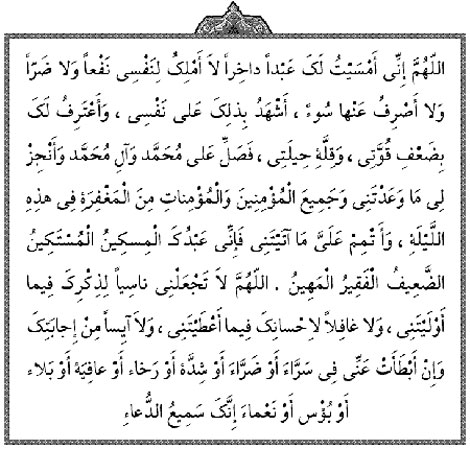 اَللّهُمَّ إِنِّی أَمْسَیْتُ لَکَ عَبْداً داخِراً لاَ أَمْلِکُ لِنَفْسِی نَفْعاً وَلا ضَرّاً
وَلا أَصْرِفُ عَنْها سُوءً ، أَشْهَدُ بِذلِکَ عَلی نَفْسِی ، وَأَعْتَرِفُ لَکَ
بِضَعْفِ قُوَّتِی ، وَقِلَّةِ حِیلَتِی ، فَصَلِّ عَلی مُحَمَّد وَآلِ مُحَمَّد وَأَنْجِزْ
لِی مَا وَعَدْتَنِی وَجَمِیعَ الْمُؤْمِنِینَ وَالْمُؤْمِناتِ مِنَ الْمَغْفِرَةِ فِی هذِهِ
اللَّیْلَةِ ، وَأَتْمِمْ عَلَیَّ مَا آتَیْتَنِی فَإِنِّی عَبْدُکَ الْمِسکِینُ الْمُسْتَکِینُ
الضَّعِیفُ الْفَقِیرُ الْمَهِینُ . اللّهُمَّ لاَ تَجْعَلْنِی ناسِیاً لِذِکْرِکَ فِیما
أَوْلَیْتَنِی ، وَلا غافِلاً لاِحْسانِکَ فِیما أَعْطَیْتَنِی ، وَلاَ آیِساً مِنْ إِجابَتِکَ
وَإِنْ أَبْطَأَتْ عَنِّی فِی سَرَّاءَ أَوْ ضَرَّاءَ أَوْ شِدَّة أَوْ رَخاء أَوْ عافِیَة أَوْ بَلاء
أَوْ بُؤْس أَوْ نَعْماءَ إِنَّکَ سَمِیعُ الدُّعاءِ